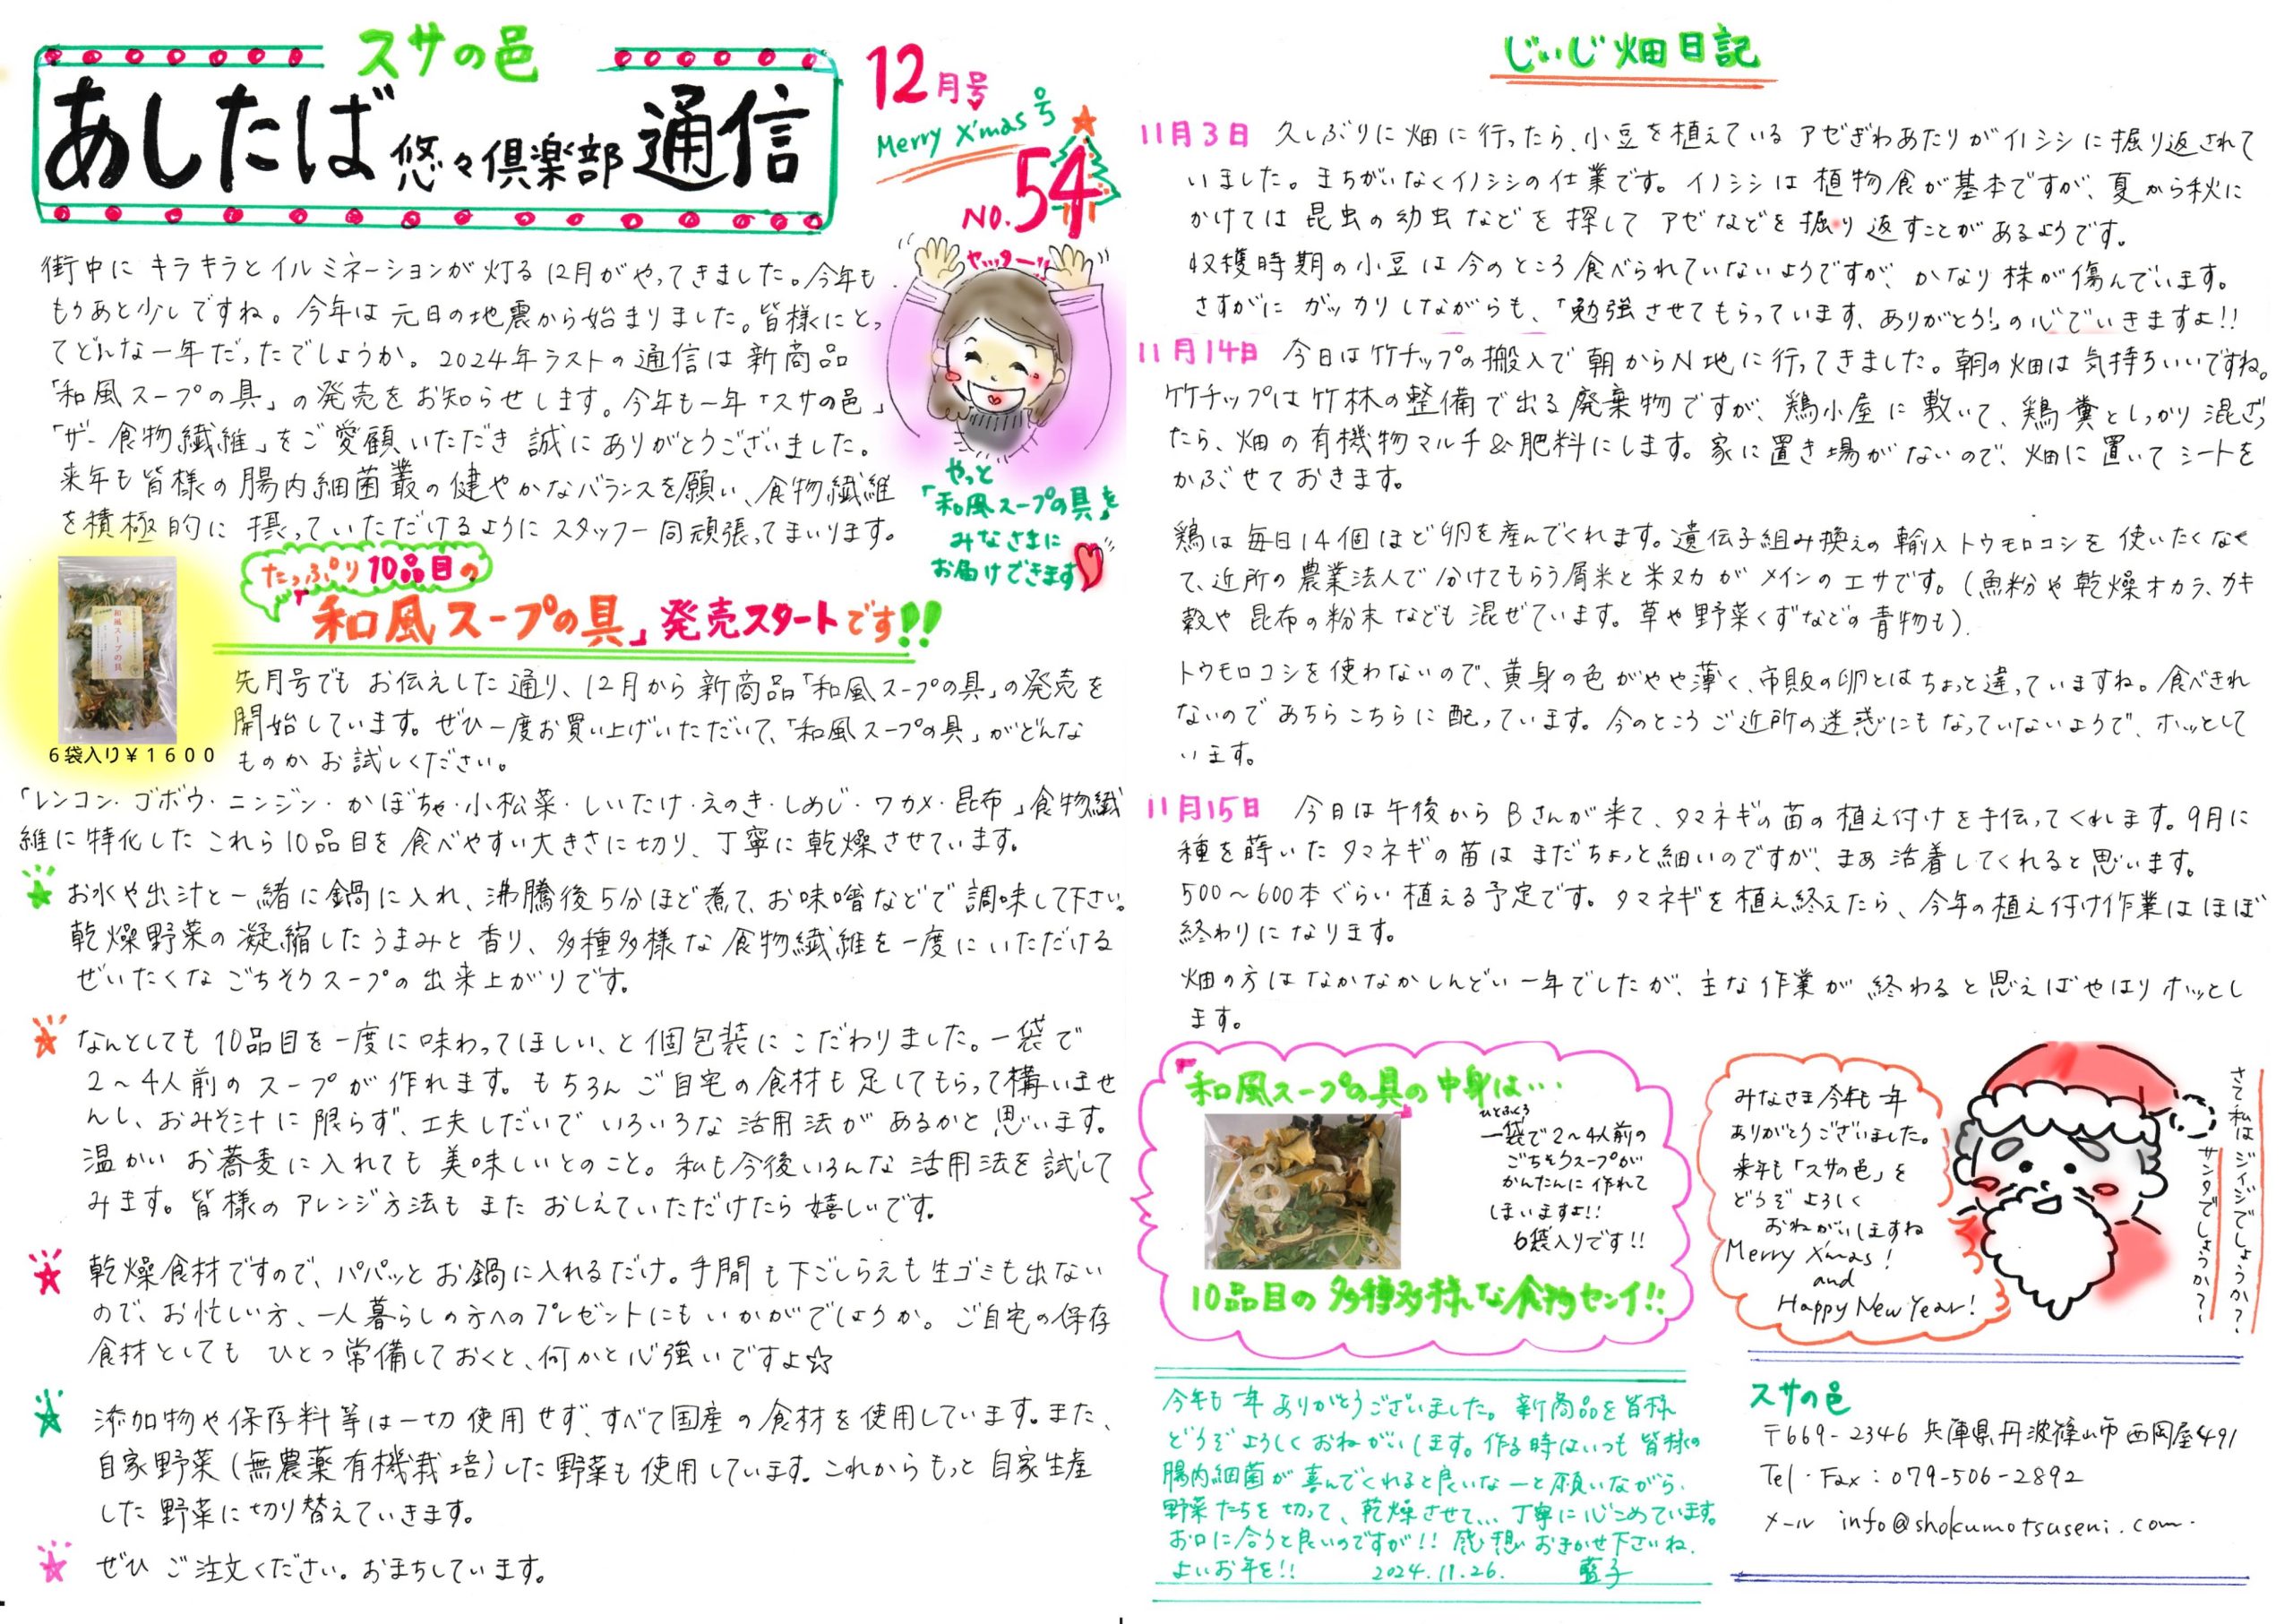 スサの邑
あしたば悠々倶楽部通信
12月号
Merry X'mas号
NO.54
街中にキラキラとイルミネーションが灯る12月がやってきました。今年も
もうあと少しですね。今年は元日の地震から始まりました。皆様にとっ
てどんな一年だったでしょうか。2024年ラストの通信は新商品
「和風スープの具」の発売をお知らせします。今年も一年「スサの邑」
「ザ・食物繊維」をご愛顧いただき誠にありがとうございました。
来年も皆様の腸内細菌叢の健やかなバランスを願い、食物繊維
を積極的に摂っていただけるようにスタッフ一同頑張ってまいります。
ヤッター!!
やっと
「和風スープの具」を
みなさまに
お届けできます
たっぷり10品目の
「和風スープの具」発売スタートです!!
6袋入り¥1600
和風スープの具
先月号でもお伝えした通り、12月から新商品「和風スープの具」の発売を
開始しています。ぜひ一度お買い上げいただいて、「和風スープの具」がどんな
ものかお試しください。
「レンコン・ゴボウ・ニンジン・かぼちゃ・小松菜・しいたけ・えのき・しめじ・ワカメ・昆布」食物繊
維に特化したこれら10品目を食べやすい大きさに切り、丁寧に乾燥させています。
お水や出汁と一緒に鍋に入れ、沸騰後5分ほど煮て、お味噌などで調味して下さい。
乾燥野菜の凝縮したうまみと香り、多種多様な食物繊維を一度にいただける
ぜいたくなごちそうスープの出来上がりです。
なんとしても10品目を一度に味わってほしい、と個包装にこだわりました。一袋で
2〜4人前のスープが作れます。もちろんご自宅の食材も足してもらって構いませ
んし、おみそ汁に限らず、工夫しだいでいろいろな活用法があるかと思います。
温かいお蕎麦に入れても美味しいとのこと。私も今後いろんな活用法を試して
みます。皆様のアレンジ方法もまたおしえていただけたら嬉しいです。
乾燥食材ですので、パパッとお鍋に入れるだけ。手間も下ごしらえも生ゴミも出ない
ので、お忙しい方、一人暮らしの方へのプレゼントにもいかがでしょうか。ご自宅の保存
食材としてもひとつ常備しておくと、何かと心強いですよ☆
添加物や保存料等は一切使用せず、すべて国産の食材を使用しています。また、
自家野菜(無農薬有機栽培)した野菜も使用しています。これからもっと自家生産
した野菜に切り替えていきます。
ぜひご注文ください。おまちしています。
じぃじ畑日記
11月3日 久しぶりに畑に行ったら、小豆を植えているアゼぎわあたりがイノシシに掘り返されて
いました。まちがいなくイノシシの仕業です。イノシシは植物食が基本ですが、夏から秋に
かけては昆虫の幼虫などを探してアゼなどを掘り返すことがあるようです。
収穫時期の小豆は今のところ食べられていないようですが、かなり株が傷んでいます。
さすがにガッカリしながらも、「勉強させてもらっています、ありがとう!」の心でいきますよ!!
11月14日 今日は竹チップの搬入で朝からN地に行ってきました。朝の畑は気持ちいいですね。
竹チップは竹林の整備で出る廃棄物ですが、鶏小屋に敷いて、鶏糞としっかり混ざっ
たら、畑の有機物マルチ&肥料にします。家に置き場がないので、畑に置いてシートを
かぶせておきます。
鶏は毎日14個ほど卵を産んでくれます。遺伝子組み換えの輸入トウモロコシを使いたくなく
て、近所の農業法人で分けてもらう屑米と米ヌカがメインのエサです。(魚粉や乾燥オカラ、カキ
殻や昆布の粉末なども混ぜています。草や野菜くずなどの青物も)。
トウモロコシを使わないので、黄身の色がやや薄く、市販の卵とはちょっと違っていますね。食べきれ
ないのであちらこちらに配っています。今のところご近所の迷惑にもなっていないようで、ホッとして
います。
11月15日 今日は午後からBさんが来て、タマネギの苗の植え付けを手伝ってくれます。9月に
種を蒔いたタマネギの苗はまだちょっと細いのですが、まあ活着してくれると思います。
500〜600本ぐらい植える予定です。タマネギを植え終えたら、今年の植え付け作業はほぼ
終わりになります。
畑の方はなかなかしんどい一年でしたが、主な作業が終わると思えばやはりホッとし
ます。
「和風スープの具の中身は…
ひとふくろ
一袋で2〜4人前の
ごちそうスープが
かんたんに作れて
しまいますよ!!
6袋入りです!!
10品目の多種多様な食物センイ!!
みなさま今年も一年
ありがとうございました。
来年も「スサの邑」を
どうぞよろしく
おねがいしますね
Merry X'mas!
and
Happy New Year!
さて私はジイジでしょうか?
サンタでしょうか?
今年も一年ありがとうございました。新商品を皆様
どうぞよろしくおねがいします。作る時はいつも皆様の
腸内細菌が喜んでくれると良いなーと願いながら、
野菜たちを切って、乾燥させて…丁寧に心こめています。
お口に合うと良いのですが!!感想おきかせ下さいね。
よいお年を!! 2024.11.26. 藍子
スサの邑
〒669-2346 兵庫県丹波篠山市西岡屋491
Tel・Fax:079-506-2892
メール info@shokumotsuseni.com.